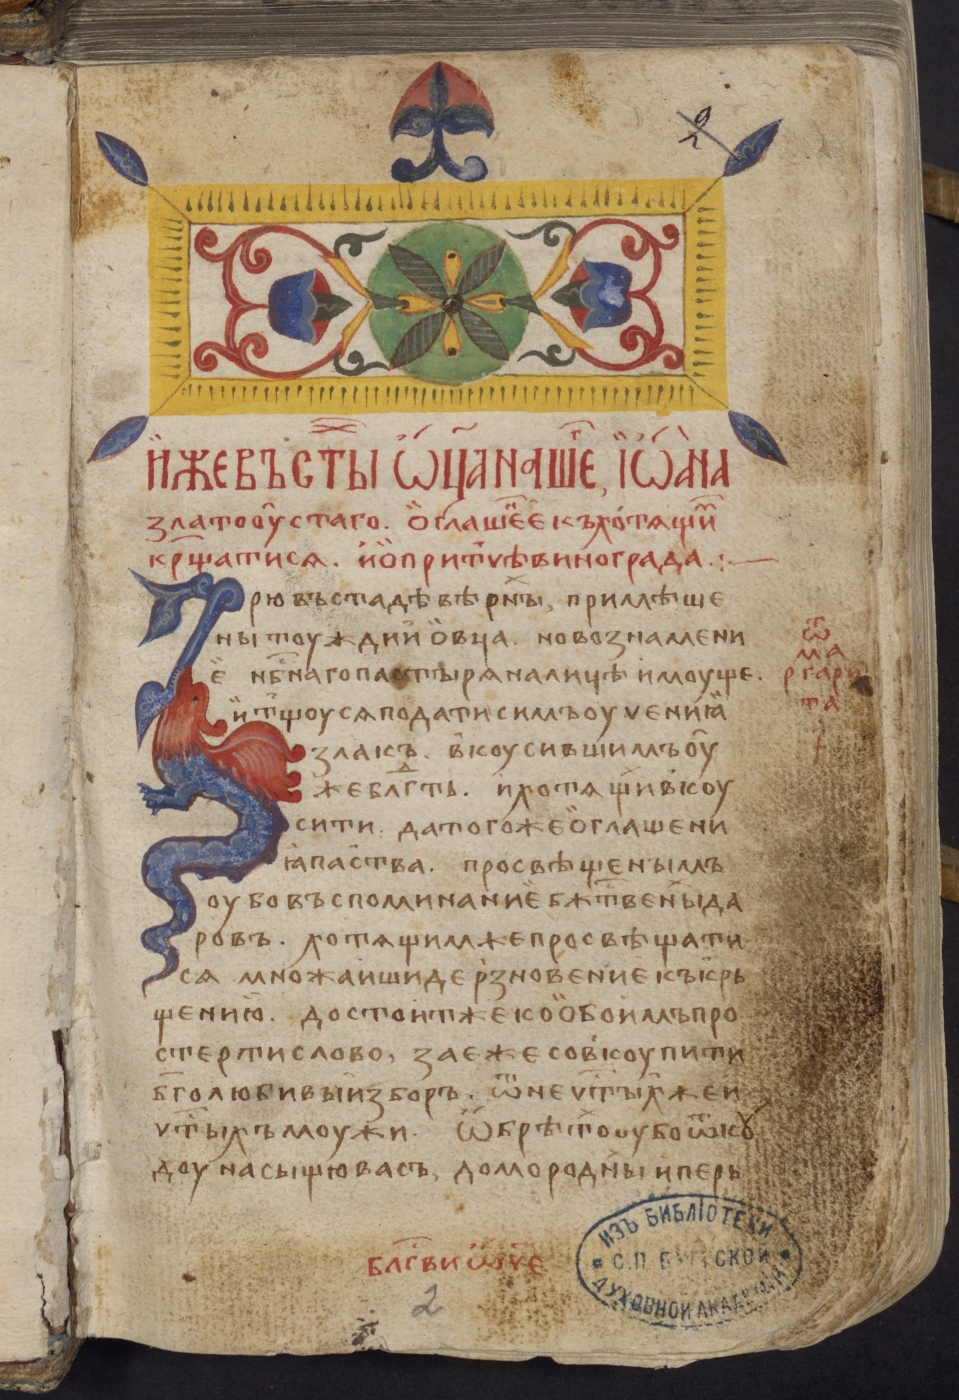 И҆́же въ ст҃ы ѡ҆ц҃а нашеⷢ҇, і҆ѡ҆а́на
златоу҆стаго. ѻ҆глаше́нїе къ хотѧщїиⷨ
крⷭ҇щатисѧ. и҆ ѻ҆ притⷱ҇ѣ винограда :—
Зрю въ стадѣ вѣрны, примѣше
ны тоуждїи ѻ҆вца. новознамени
є҆ нбⷭ҇наго пастырѧ на лицѣ имоуще.
и҆ тщоусѧ подати симъ оучениꙗ
злакъ. вкоусившимъ оу҆
же блгⷣть. и҆ хотѧщи вкоу
сити. да того же ѻ҆глашени
ꙗ паства. просвѣщенымъ
оубо въспоминанїе бжⷭ҇твены да
ровъ. хотѧщим же просвѣщати
сѧ множаиши дерзновенїе къ крь
щенїю. достоит же ко ѻ҆боимъ про
стерти слово, за еже совкоупити
бг҃олюбивыи зборъ. ѿ нечⷭ҇тых же и
чⷭ҇тыхъ моужи. ѡ҆брѣто оубо ѿкѹ
доу насыщю васъ, доморѡдны и перь
ѿ
ма
ргари
та
блгⷭ҇ви ѡ҆ч҃е
2
2
ИЗЪ БИБЛІОТЕКИ
С.П. БУРГСКОЙ
ДУХОВНОЙ АКАДЕМІИ